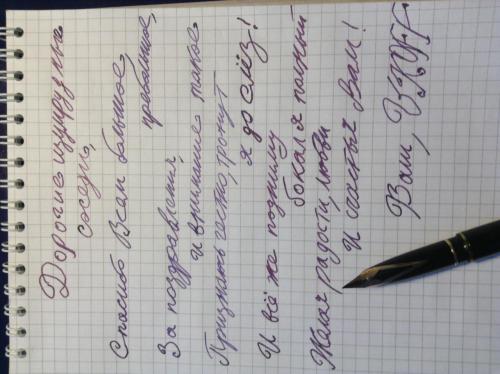 Дорогие изумрудные
соседи,
Спасибо Всем большое,
пребольшое,
За поздравления
и внимание такое
Признать честно, тронут
я до слёз!
И всё же подниму
бокал я полный
Желая радости, любви
И счастья Вам!
Ваш,